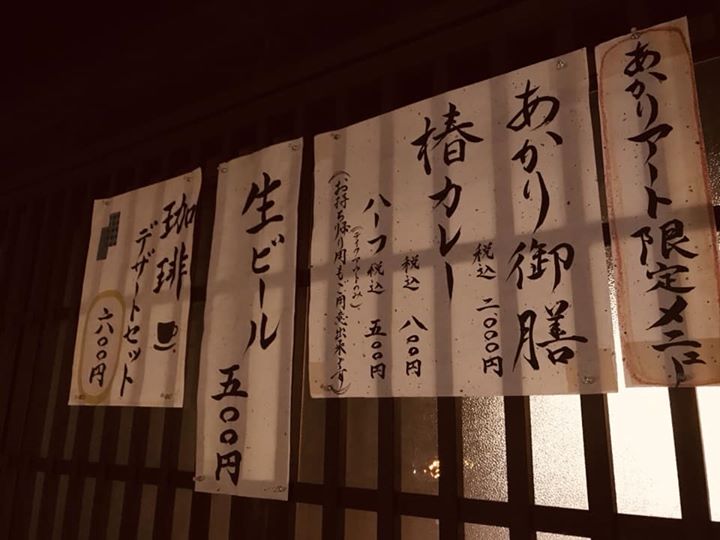 あかりアート限定メニュー
あかり御膳
税込 二、000円
椿カレー
税込 八00円
ハーフ 税込 五00円
(テイクアウトのみ)
(お持ち帰り用もご用意出来ます)
生ビール
五00円
珈琲
デザートセット
六00円